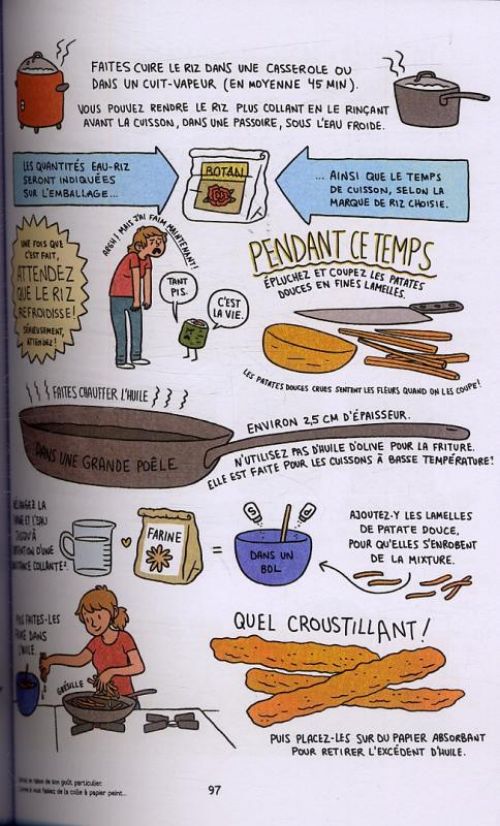 FAITES CUIRE LE RIZ DANS UNE CASSEROLE OU
DANS UN CUIT-VAPEUR (EN MOYENNE 45 MIN).
VOUS POUVEZ RENDRE LE RIZ PLUS COLLANT EN LE RINÇANT
AVANT LA CUISSON, DANS UNE PASSOIRE, SOUS L'EAU FROIDE.
LES QUANTITÉS EAU-RIZ
SERONT INDIQUÉES
SUR L'EMBALLAGE...
BOTAN
... AINSI QUE LE TEMPS
DE CUISSON, SELON LA
MARQUE DE RIZ CHOISIE.
UNE FOIS QUE
C'EST FAIT,
ATTENDEZ
QUE LE RIZ
REFROIDISSE!
SÉRIEUSEMENT,
ATTENDEZ!
ARGH! MAIS J'AI FAIM MAINTENANT!
TANT
PIS.
C'EST
LA VIE.
PENDANT CE TEMPS
ÉPLUCHEZ ET COUPEZ LES PATATES
DOUCES EN FINES LAMELLES.
LES PATATES DOUCES CRUES SENTENT LES FLEURS QUAND ON LES COUPE!
FAITES CHAUFFER L'HUILE
DANS UNE GRANDE POÊLE
ENVIRON 2,5 CM D'ÉPAISSEUR.
N'UTILISEZ PAS D'HUILE D'OLIVE POUR LA FRITURE.
ELLE EST FAITE POUR LES CUISSONS À BASSE TEMPÉRATURE!
LA
ET L'EAU
D'UNE
COLLANTE².
FARINE
=
DANS UN
BOL
AJOUTEZ-Y LES LAMELLES
DE PATATE DOUCE,
POUR QU'ELLES S'ENROBENT
DE LA MIXTURE.
FAITES-LES
DANS
GRÉSILLE
QUEL CROUSTILLANT!
PUIS PLACEZ-LES SUR DU PAPIER ABSORBANT
POUR RETIRER L'EXCÉDENT D'HUILE.
de son goût particulier.
de la colle à papier peint...
97